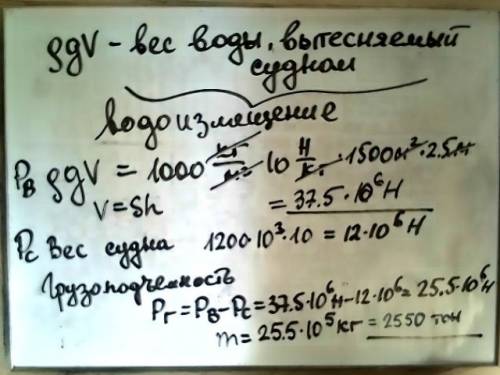 ρgV - вес воды, вытесняемый
судном
водоизмещение
Pв ρgV = 1000 кг/м³ 10 Н/кг · 1500м² · 2.5м
V = Sh = 37.5 · 10⁶ Н
Pс Вес судна 1200·10³·10 = 12·10⁶ Н
Грузоподъемность
Pг = Pв - Pс = 37.5·10⁶ Н - 12·10⁶ = 25.5·10⁶ Н
m = 25.5·10⁵ кг = 2550 тон